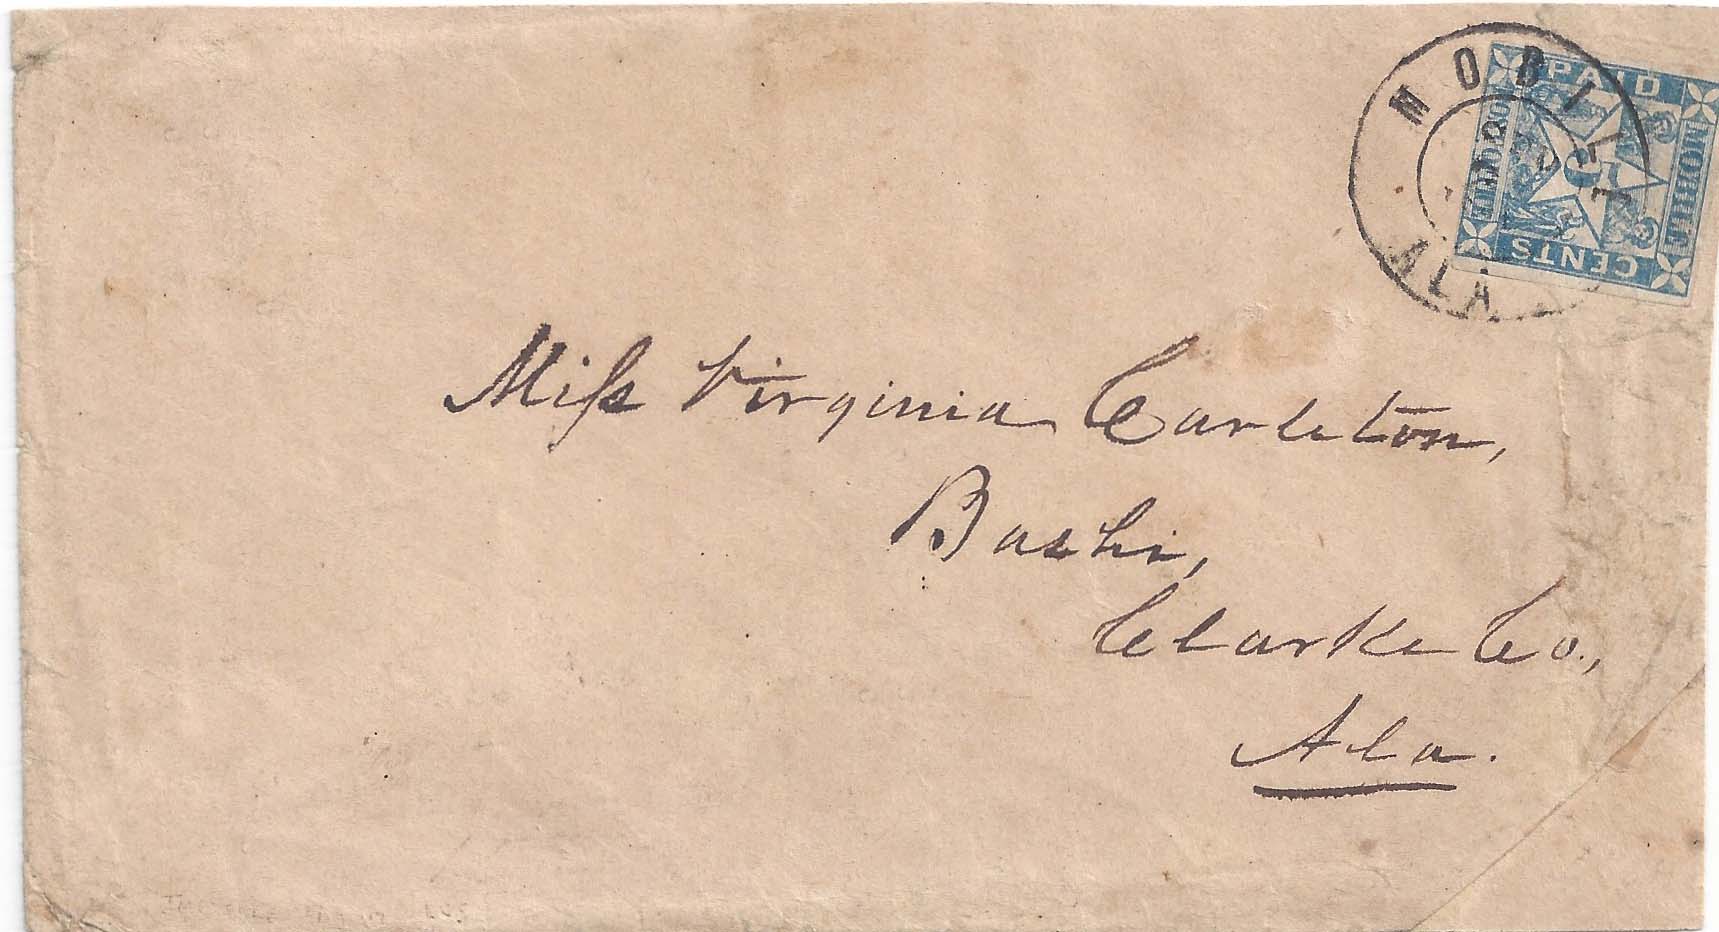 MOBILE
ALA
PAID
MOBILE
5
MOBILE
CENTS
Miſs Virginia Carleton,
Bashi,
Clarke Co.,
Ala.